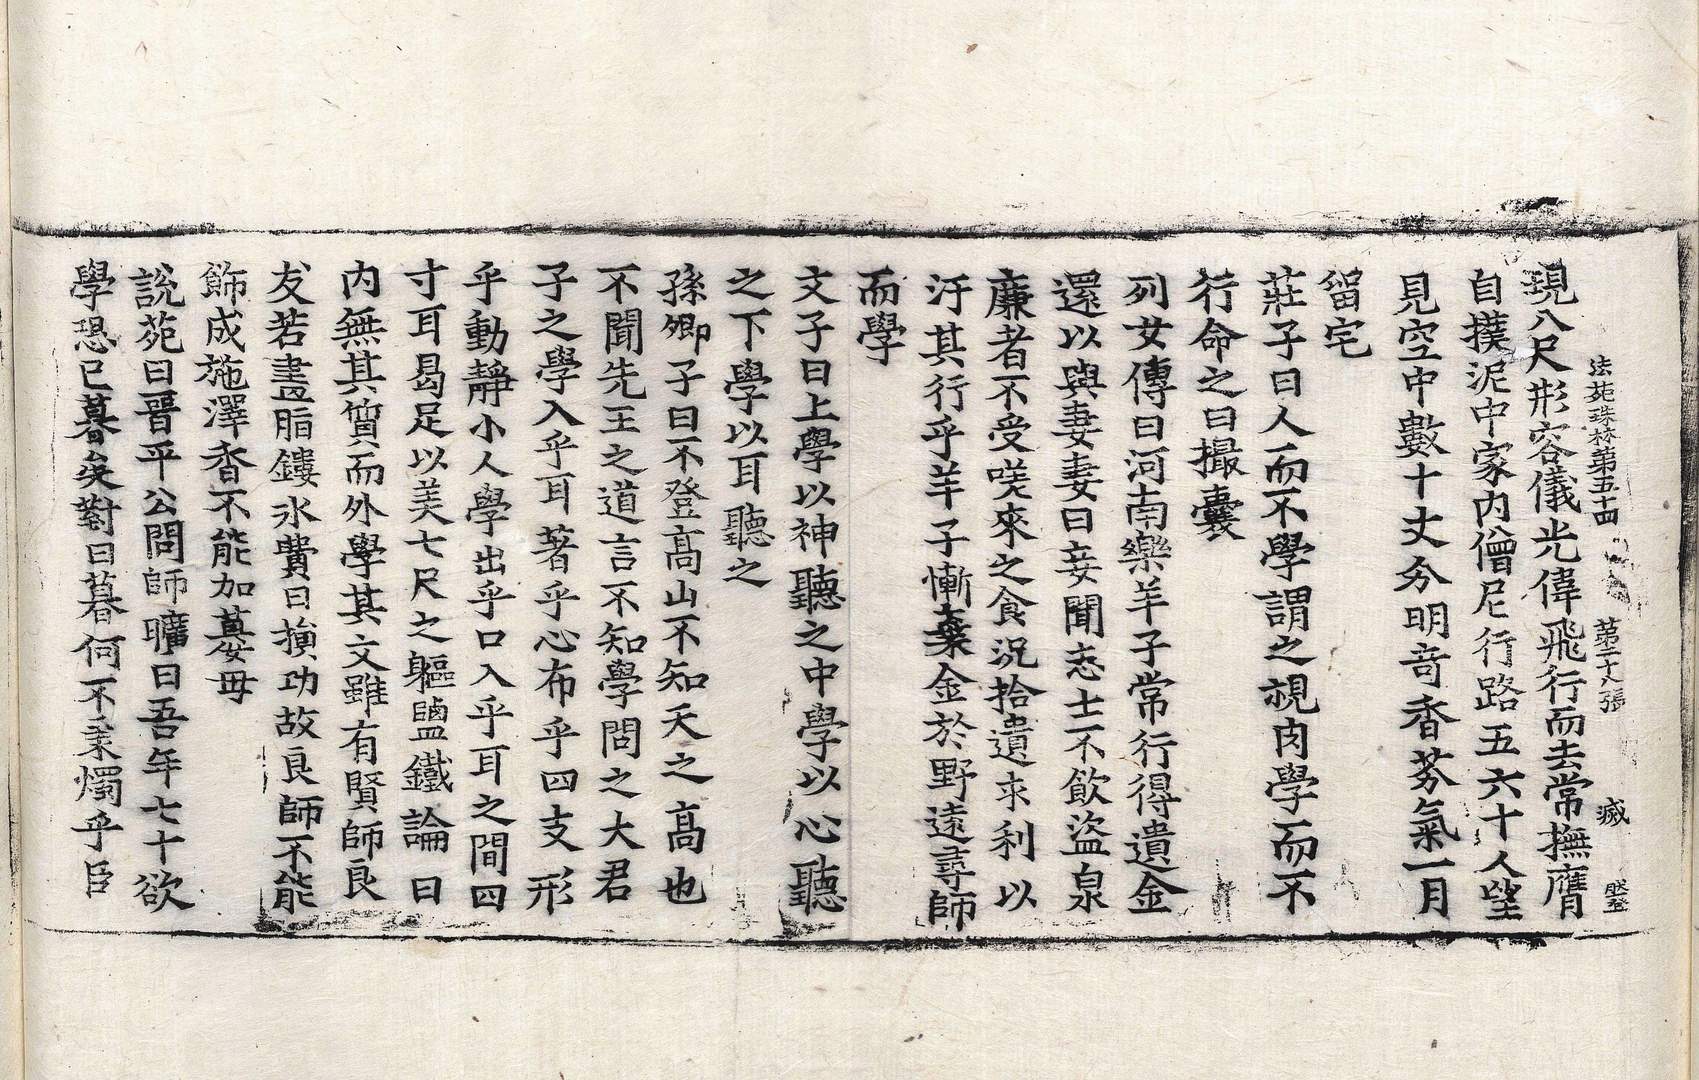 法苑珠林第五十四 第二十八張 㓕
現八尺形容儀光偉飛行而去常撫膺
自撲泥中家内僧尼行路五六十人望
見空中數十丈分明竒香芬氣一月
留宅
莊子曰人而不學謂之視肉學而不
行命之曰撮囊
列女傳曰河南樂羊子常行得遺金
還以與妻妻曰妾聞志士不飲盜泉
廉者不受嗟來之食況拾遺求利以
汙其行乎羊子慚棄金於野遠尋師
而學
文子曰上學以神聽之中學以心聽
之下學以耳聽之
孫卿子曰不登髙山不知天之髙也
不聞先王之道言不知學問之大君
子之學入乎耳著乎心布乎四支形
乎動靜小人學出乎口入乎耳之間四
寸耳曷足以美七尺之軀鹽鐵論曰
内無其質而外學其文雖有賢師良
友若畫脂鏤氷費日損功故良師不能
飾成施澤香不能加嫫母
說苑曰晉平公問師曠曰吾年七十欲
學恐已暮矣對曰暮何不秉燭乎臣